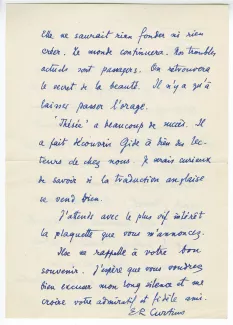 Elle ne saurait rien fonder ni rien
créer. Le monde continuera. Nos troubles
actuels sont passagers. On retrouvera
le secret de la beauté. Il n'y a qu'à
laisser passer l'orage.
'Thésée' a beaucoup de succès. Il
a fait découvrir Gide à bien des lec-
teurs de chez nous. Je serais curieux
de savoir si la traduction anglaise
se vend bien.
J'attends avec le plus vif intérêt
la plaquette que vous m'annoncez.
Ilse se rappelle à votre bon
souvenir. J'espère que vous voudrez
bien excuser mon long silence et me
croire votre admiratif et fidèle ami.
E.R. Curtius